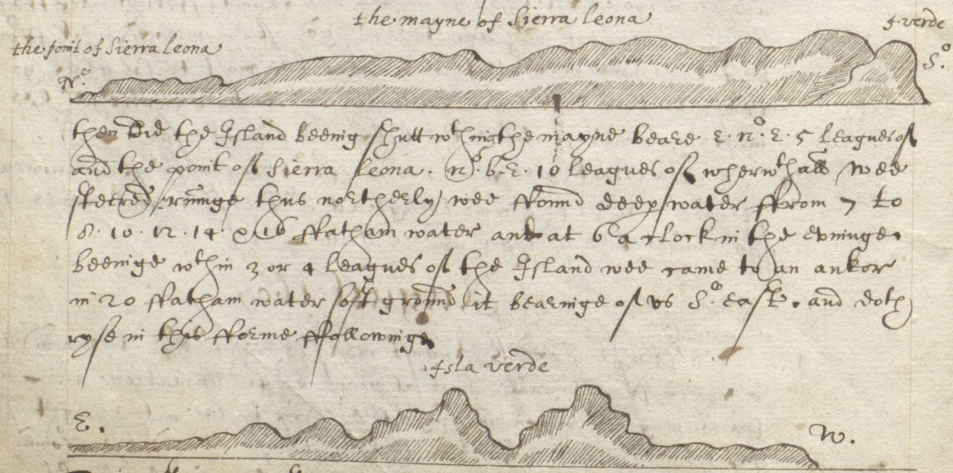 the mayne of Sierra leona
J. verde
the point of Sierra leona
No
So
then did the Island beenig shutt wthing the mayne beare E. No. E. 5 leagues of
and the point of Sierra leona. No. b. E. 10 leagues of wherwthall wee
steered runnge thus northerly wee ffound deep water ffrom 7 to
8. 10. 12. 14. & 16 ffatham water and at 6 a clock in the evninge
beeinge wthin 3 or 4 leagues of the Island wee came to an ankor
in 20 ffatham water soft ground it bearinge of us So east. and doth
ryse in this fforme ffollowinge
Isla verde
E.
W.